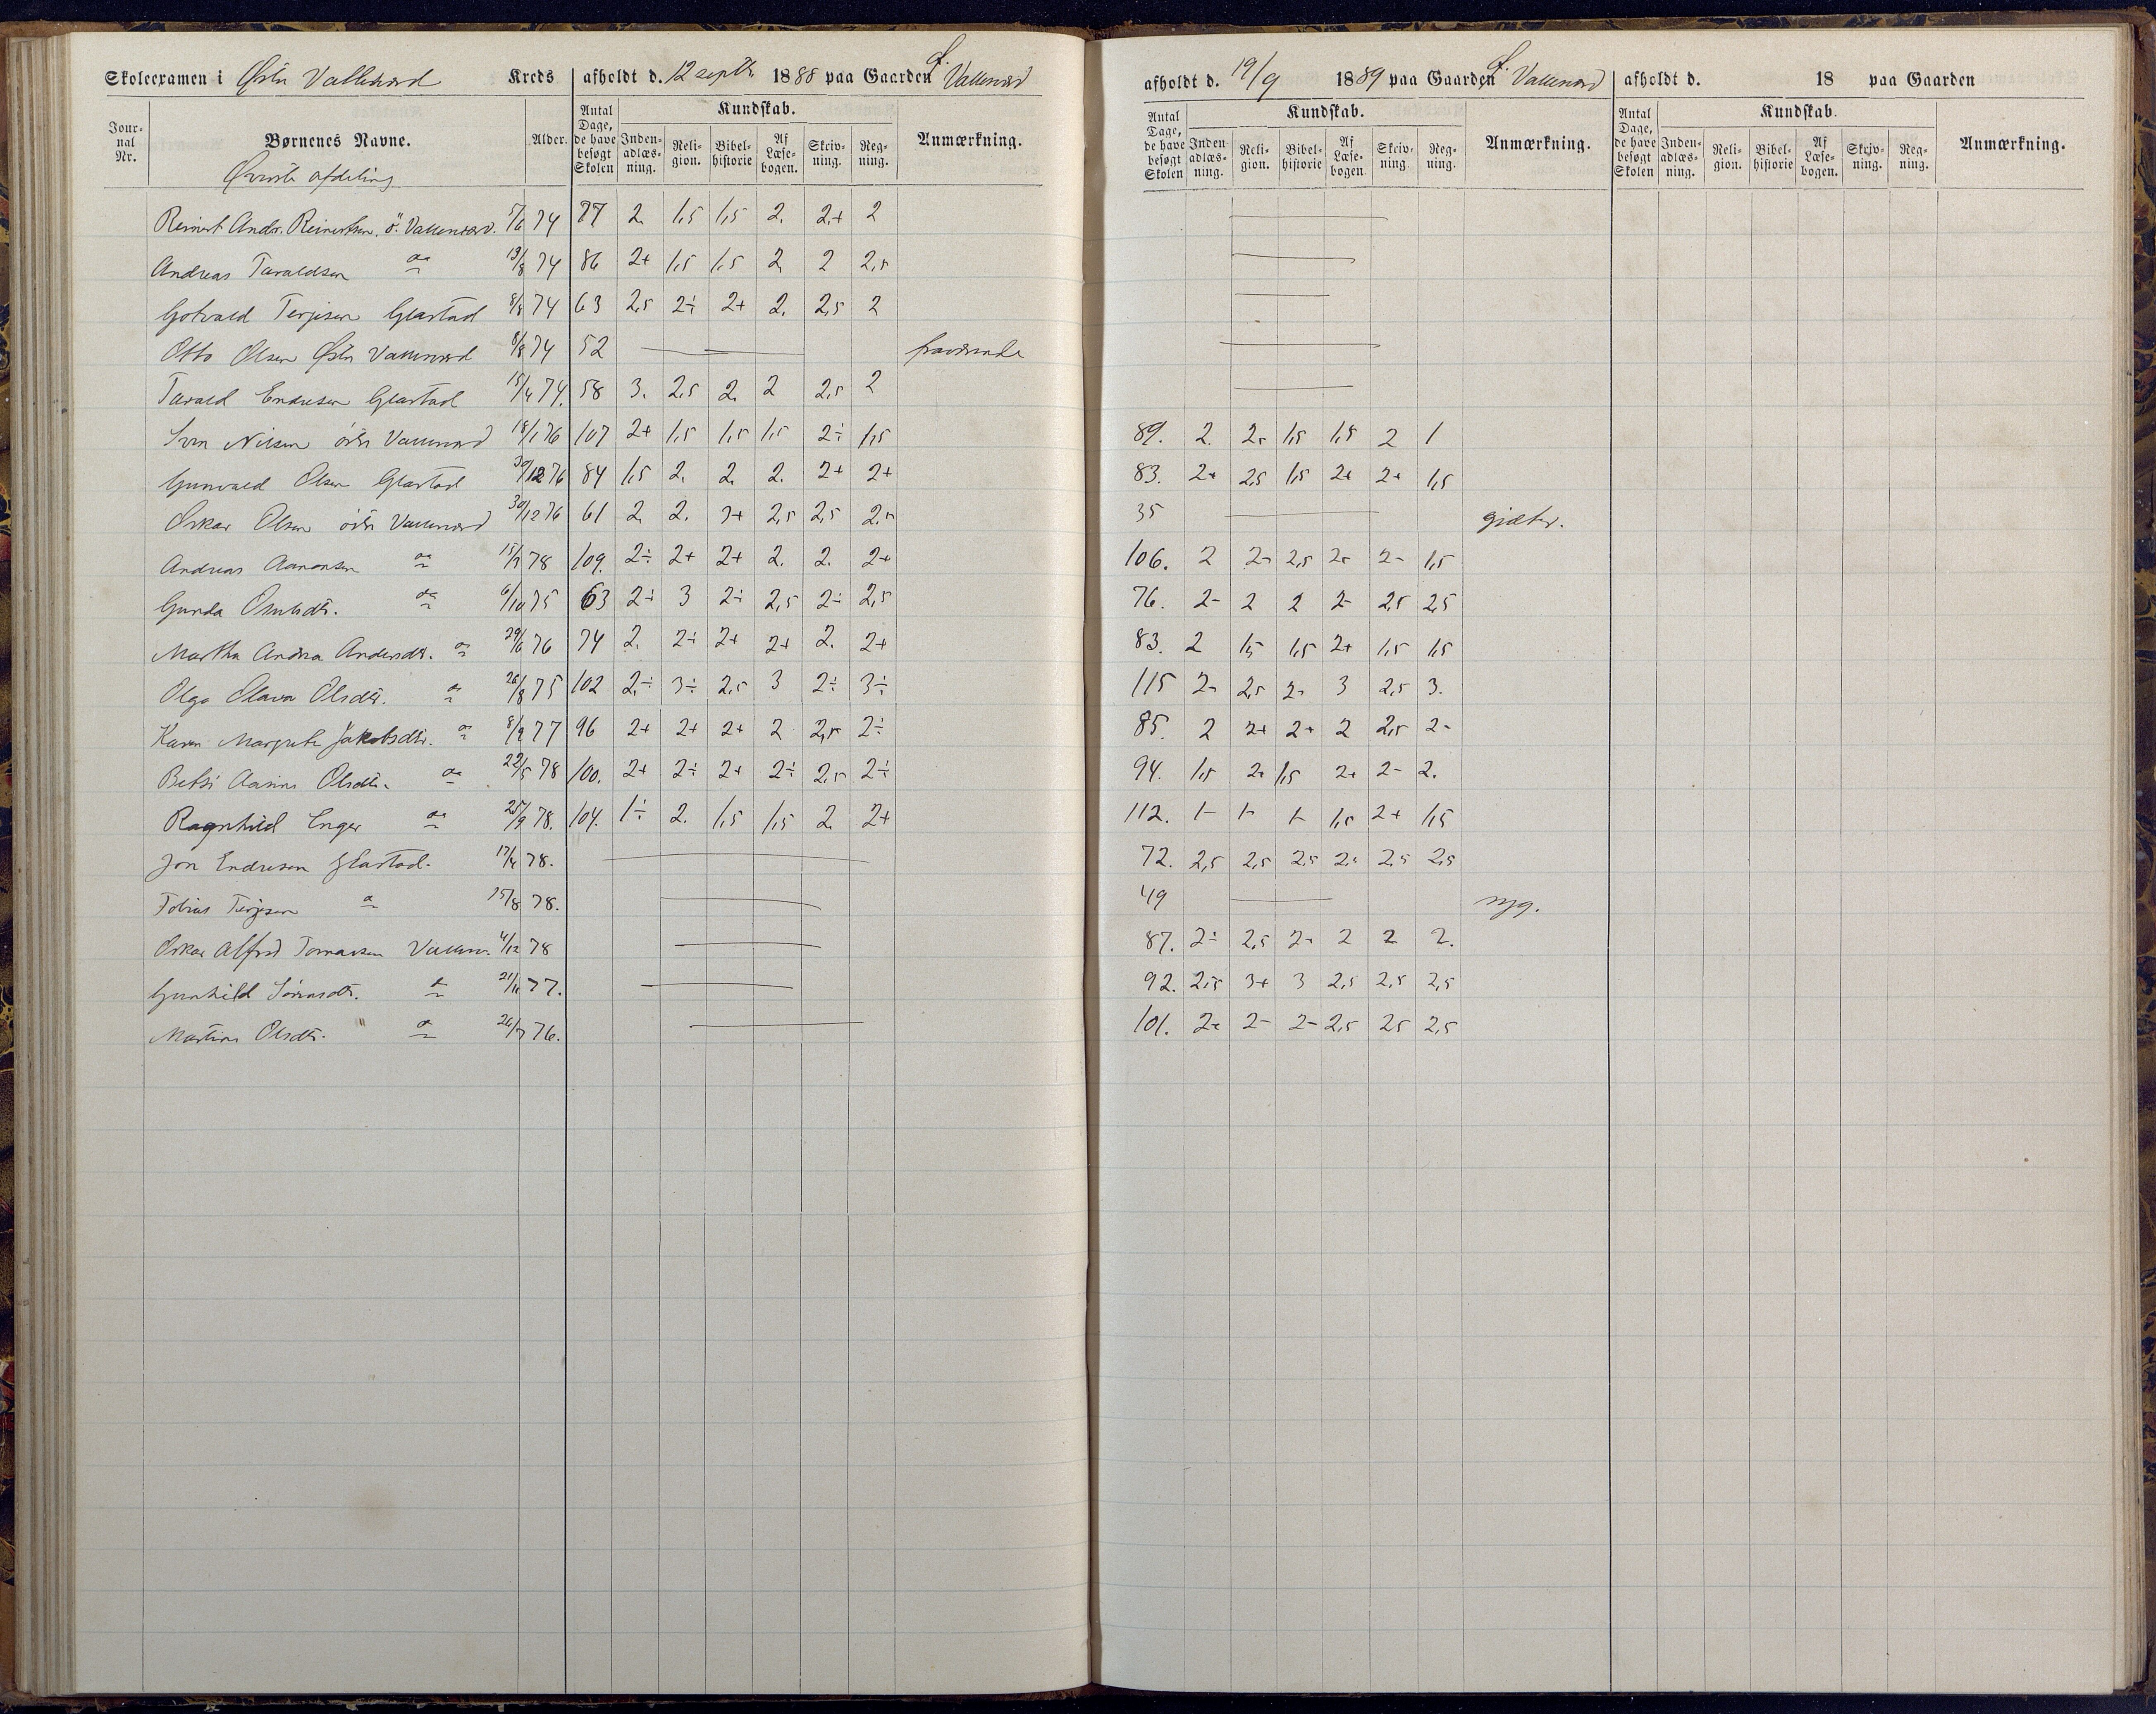 Skoleexamen i Østre Vallesværd Kreds afholdt d. 12 septbr 1888 paa Gaarden Ø. Vallesværd afholdt d. 19/9 1889 paa Gaarden Ø. Vallesværd afholdt d. 18 paa Gaarden
Jour-nal Nr. Børnenes Navne. Alder. Antal Dage, de have besøgt Skolen Kundskab. Inden-adlæs-ning. Reli-gion. Bibel-historie Af Læse-bogen. Skriv-ning. Reg-ning. Anmærkning. Antal Dage, de have besøgt Skolen Kundskab. Inden-adlæs-ning. Reli-gion. Bibel-historie Af Læse-bogen. Skriv-ning. Reg-ning. Anmærkning. Antal Dage, de have besøgt Skolen Kundskab. Inden-adlæs-ning. Reli-gion. Bibel-historie Af Læse-bogen. Skriv-ning. Reg-ning. Anmærkning.
Øverste afdeling
Reinert Andr. Reinertsen. ö. Vallesværd. 7/6 74 77 2. 1,5 1,5 2. 2,+ 2
Andreas Taraldsen do 19/8 74 86 2+ 1,5 1,5 2. 2 2,5
Gotvald Terjesen Glastad 8/8 74 63 2,5 2÷ 2+ 2. 2,5 2
Otto Olsen Østre Vallesværd 8/8 74 52 fraværende
Tarald Endresen Glastad 15/4 74. 58 3. 2,5 2. 2 2,5 2
Sven Nilsen östre Vallesværd 18/1 76 107 2+ 1,5 1,5 1,5 2÷ 1,5 89. 2. 2- 1,5 1,5 2 1
Gunvald Olsen Glastad 30/12 76 84 1,5 2. 2. 2. 2+ 2+ 83. 2+ 2,5 1,5 2+ 2+ 1,5
Oskar Olsen östre Vallesværd 30/12 76 61 2. 2. 2+ 2,5 2,5 2,5 35 gjæter.
Andreas Aanonsen do 15/7 78 109. 2÷ 2+ 2+ 2. 2. 2+ 106. 2 2- 2,5 2- 2- 1,5
Gunda Omlsdtr. do 6/10 75 63 2÷ 3 2÷ 2,5 2÷ 2,5 76. 2- 2 2 2- 2,5 2,5
Martha Andrea Andersdtr. do 29/6 76 74 2. 2÷ 2+ 2+ 2. 2+ 83. 2 1,5 1,5 2+ 1,5 1,5
Olga Olava Olsdtr. do 26/8 75 102 2,÷ 3÷ 2,5 3 2÷ 3÷ 115 2- 2,5 2- 3 2,5 3.
Karen Margrete Jakobsdtr. do 8/9 77 96 2+ 2+ 2+ 2 2,5 2÷ 85. 2 2+ 2+ 2 2,5 2-
Betsi Aasine Olsdtr. do 22/5 78 100. 2+ 2÷ 2+ 2÷ 2,5 2÷ 94. 1,5 2- 1,5 2+ 2- 2.
Ragnhild Enger do 25/9 78. 104. 1÷ 2. 1,5 1,5 2. 2+ 112. 1- 1- 1- 1,5 2+ 1,5
Jon Endresen Glastad. 17/4 78. 72. 2,5 2,5 2,5 2,5 2,5 2,5
Tobias Terjesen do 15/8 78. 49 syg.
Oskar Alfred Tomassen Vallesv. 4/12 78 87. 2÷ 2,5 2- 2 2 2.
Gunhild Sörensdtr. do 21/11 77. 92. 2,5 3+ 3 2,5 2,5 2,5
Martine Olsdtr. do 26/7 76. 101. 2+ 2- 2- 2,5 25 2,5